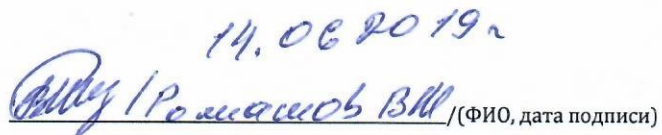 14.06 2019 г
/ Ромашов ВМ /(ФИО, дата подписи)